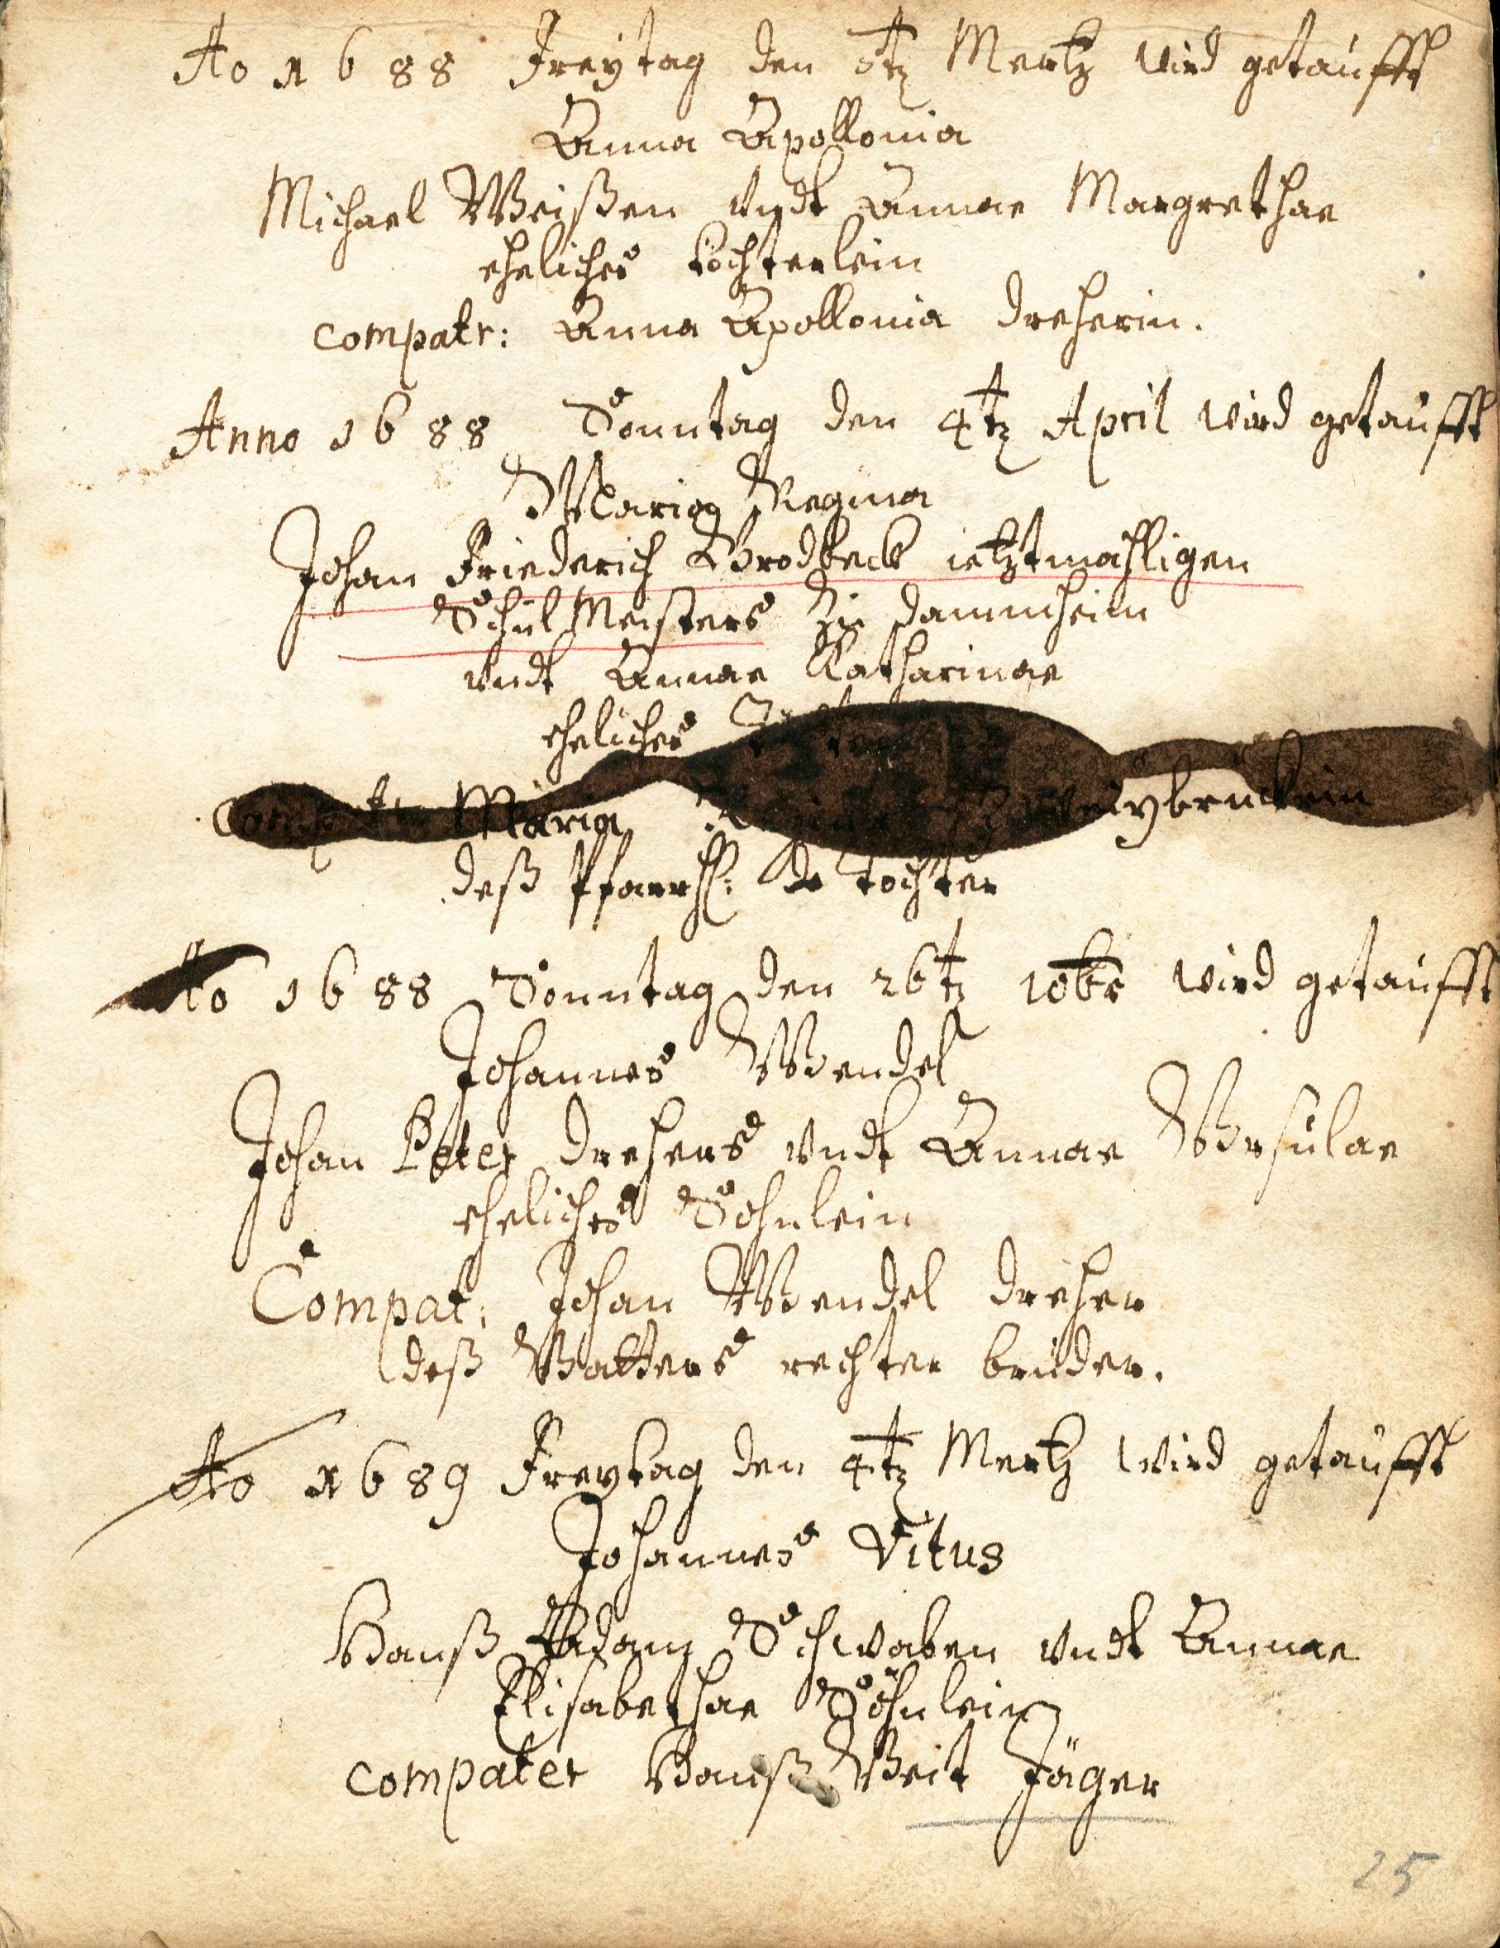 Ao 1688 Freytag den 5tz Mertz wird getaufft
Anna Apollonia
Michael Weißen vndt Annae Margrethae
eheliches töchterlein
compatr: Anna Apollonia Dreherin.
Anno 1688 Sonntag den 4tz April wird getaufft
Maria Regina
Johan Friederich Brodbeck ietztmahligen
Schul Meisters zu Dammheim
vndt Annae Catharinae
eheliches
Compatr: Maria Regina Zweybrückein
deß Pfarrh: tochter
Ao 1688 Sonntag den 26tz 10br wird getaufft
Johannes Wendel
Johan Peter Drehers vndt Annae Vrsulae
eheliches Sohnlein
Compat: Johan Wendel Dreher
deß Vatters rechter bruder.
Ao 1689 Freytag den 4tz Mertz wird getaufft
Johannes Vitus
Hanß Adam Schwaben vndt Annae
Elisabethae Söhnlein
compater Hanß Veit Jäger
25